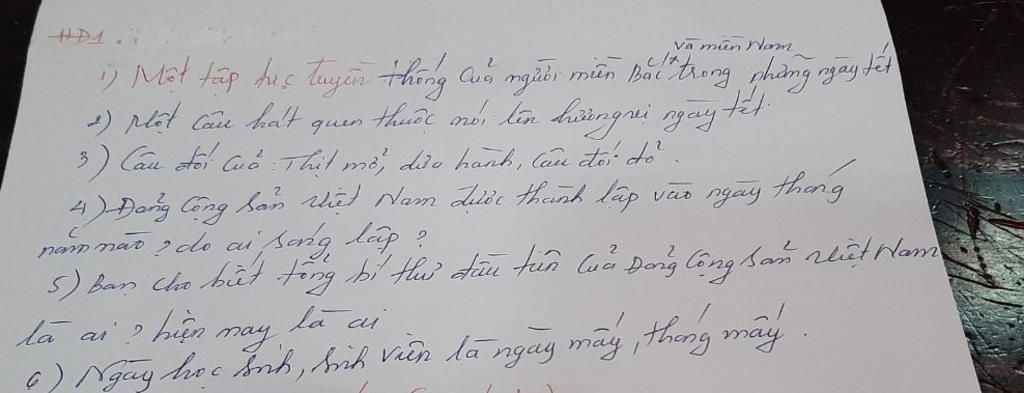 HĐ1.
và miền Nam
1) Một tập tục tuyền thống Của người miền Bắc trong những ngày tết
2) Một Câu hát quen thuộc nói lên hương vị ngày tết.
3) Câu đối Của: Thịt mỡ, dưa hành, Câu đối đỏ.
4) Đảng Cộng Sản việt Nam được thành lập vào ngày tháng
năm nào? do ai sáng lập?
5) Bạn cho biết tổng bí thư đầu tiên Của Đảng Cộng Sản việt Nam
là ai? hiện nay là ai
6) Ngày học Sinh, Sinh viên là ngày mấy, tháng mấy.